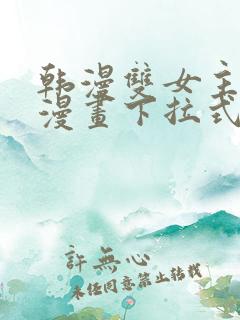 韩漫雙女主
漫畫下拉式
許無心
未经同意禁止转载